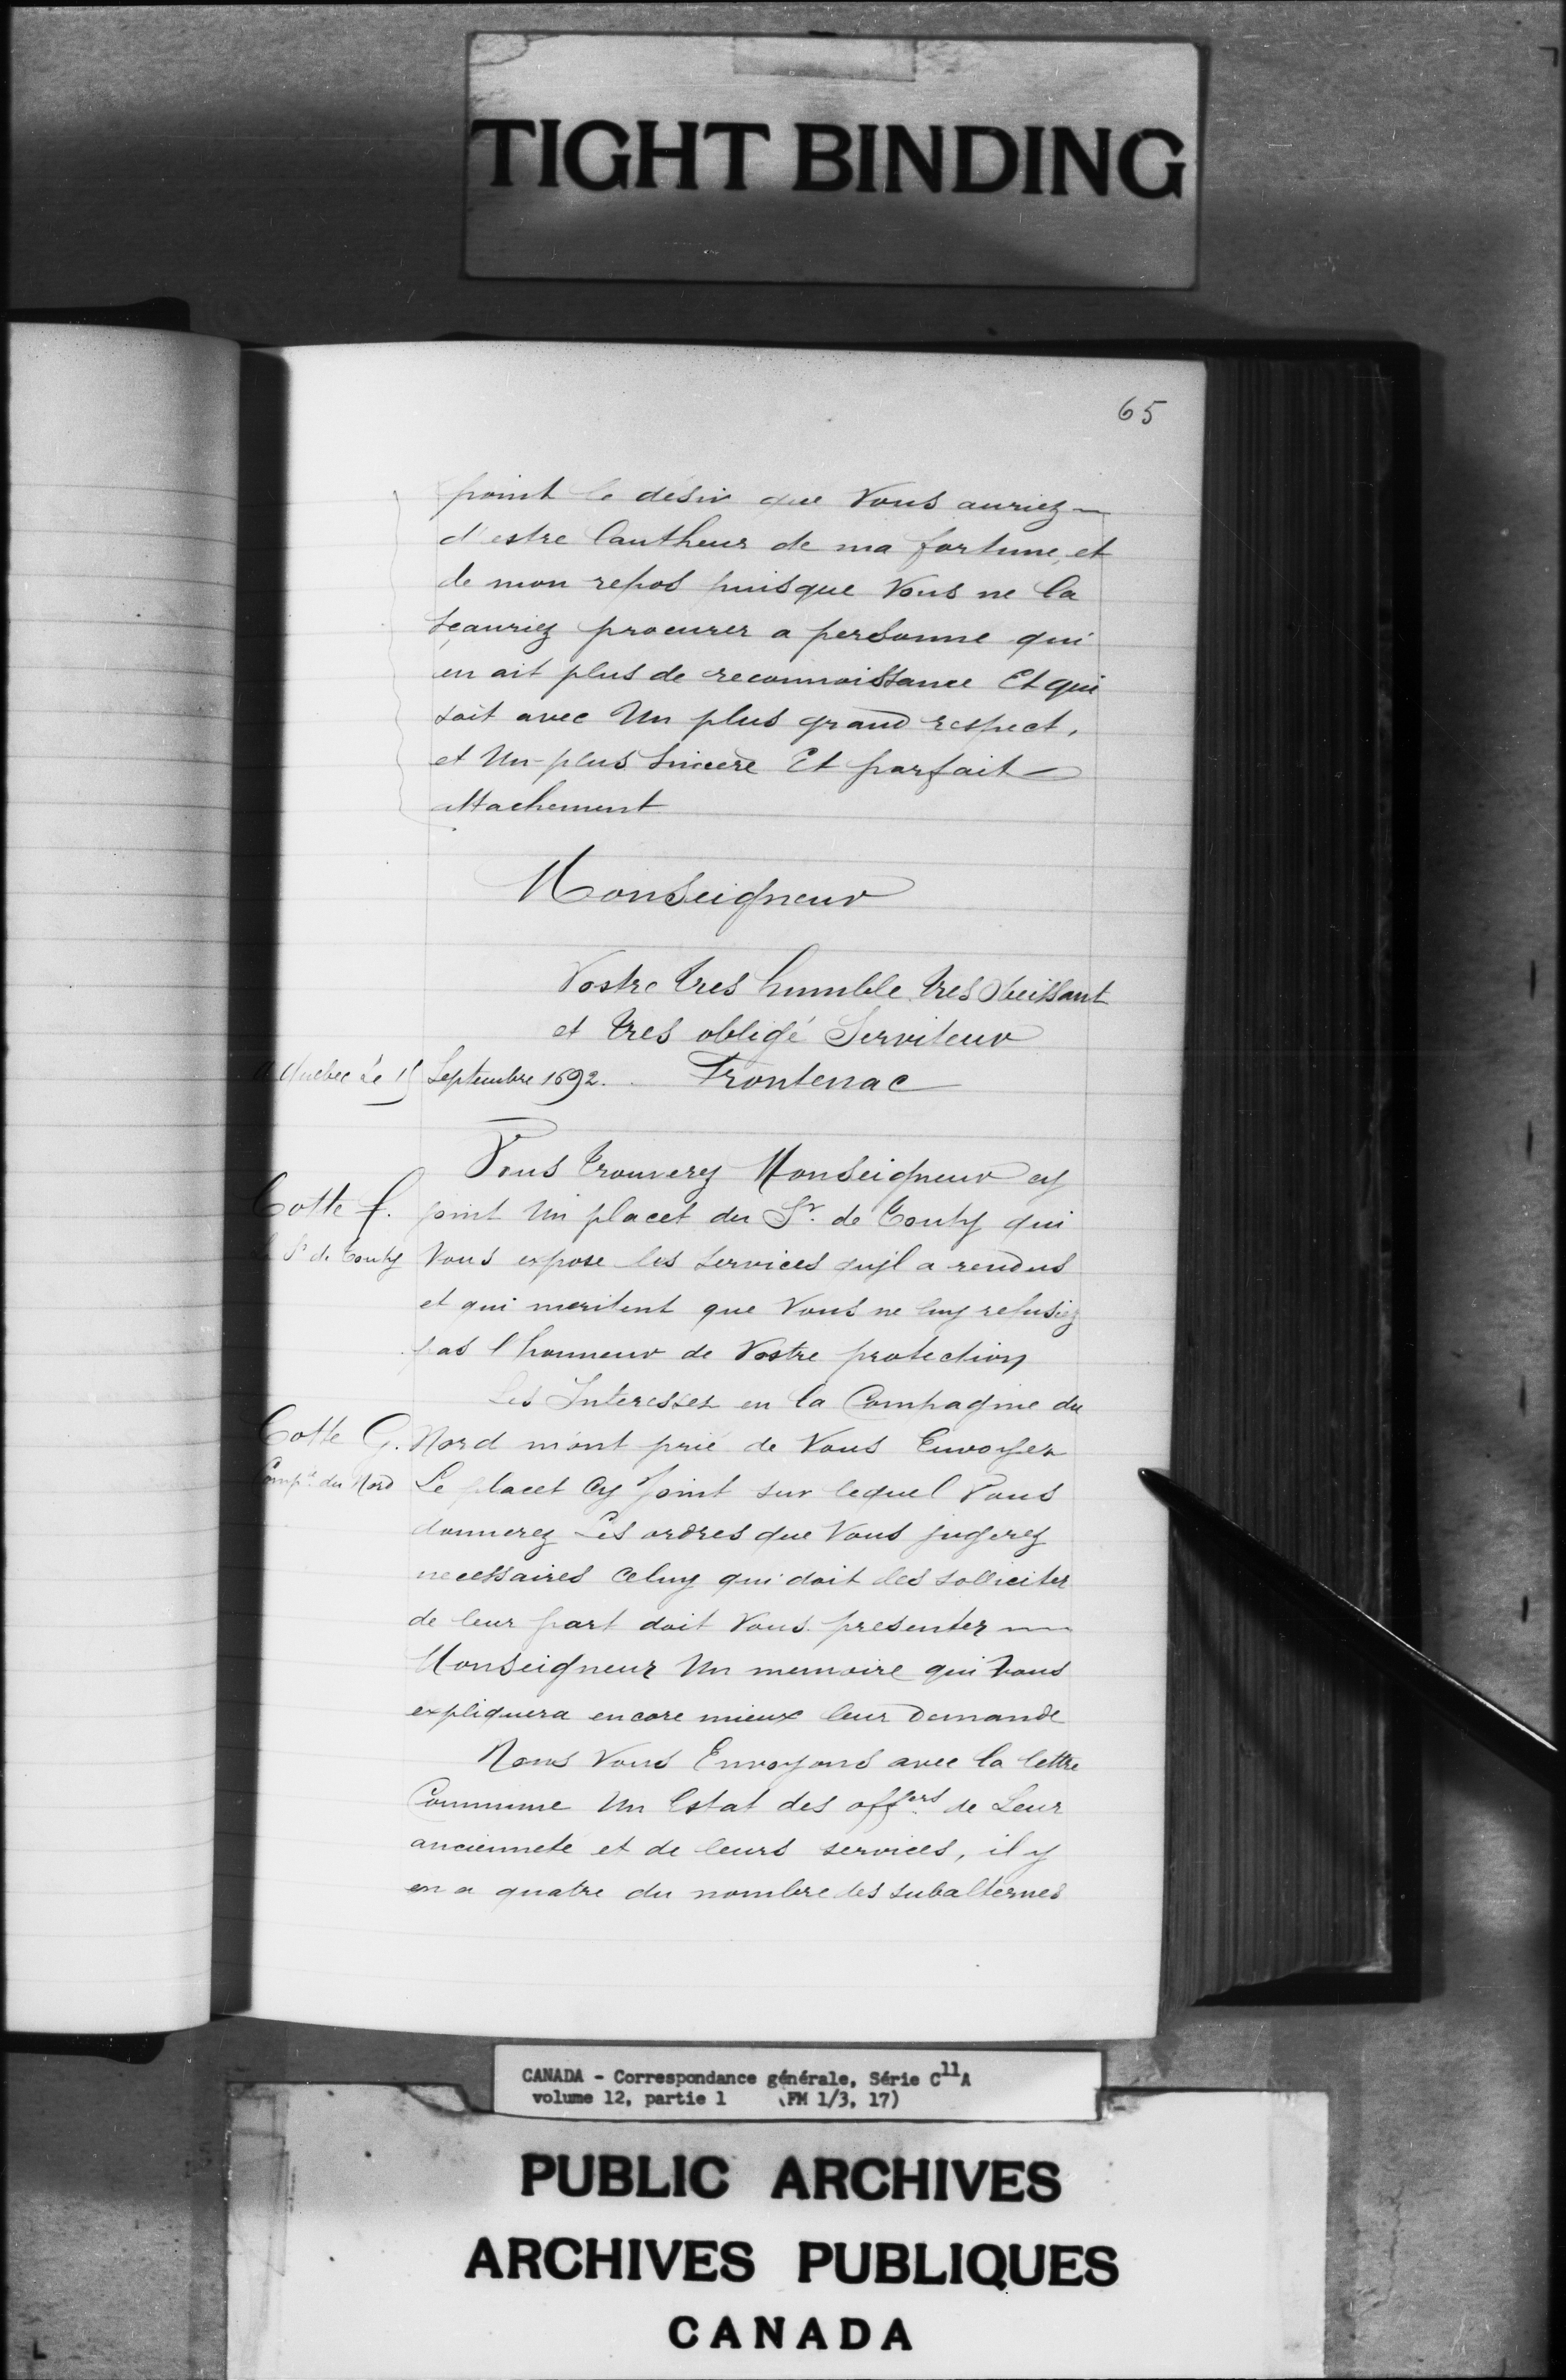 TIGHT BINDING
65
point le désir que Vous auriez
d'estre l'autheur de ma fortune, et
de mon repos puisque Vous ne la
sçauriez procurer a personne qui
en ait plus de reconnoissance Et qui
soit avec Un plus grand respect,
et Un plus sincere Et parfait
attachement
Monseigneur
Vostre tres humble tres obeissant
et tres obligé Serviteur
A Quebec le 15 Septembre 1692. Frontenac
Vous trouverez Monseigneur cy
Cotte f. joint Un placet du Sr. de Tonty qui
Le Sr de Tonty Vous expose les services qu'jl a rendus
et qui meritent que Vous ne luy refusiez
pas l'honneur de Vostre protection
Les Interessez en la Compagnie du
Cotte G. Nord m'ont prié de Vous Envoyer
Compie du Nord Le placet Cy Joint sur lequel Vous
donnerez Les ordres que Vous jugerez
necessaires celuy qui doit les solliciter
de leur part doit Vous presenter
Monseigneur Un memoire qui Vous
expliquera encore mieux leur Demande
Nous Vous Envoyons avec la lettre
Commune Un Estat des offers de Leur
ancienneté et de leurs services, il y
en a quatre du nombre des subalternes
CANADA - Correspondance générale, Série C11A
volume 12, partie 1 (FM 1/3, 17)
PUBLIC ARCHIVES
ARCHIVES PUBLIQUES
CANADA